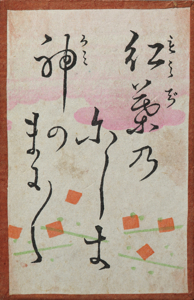 紅葉乃
もみぢ
尓しき
神の
かみ
まに〳〵